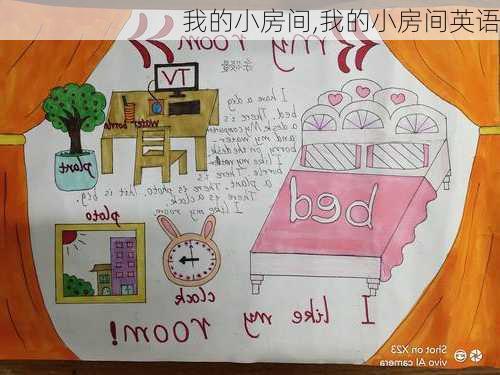 我的小房间,我的小房间英语
my room
TV
I have a dig
bed. There is
a desk. My computer
and my water
borry on the desk
I like my
There is
a plant. There is photo. that is big.
There is a clock.
I like my room
plant
bed
ploto
clock
I like my room!
Shot on X23
vivo AI camera